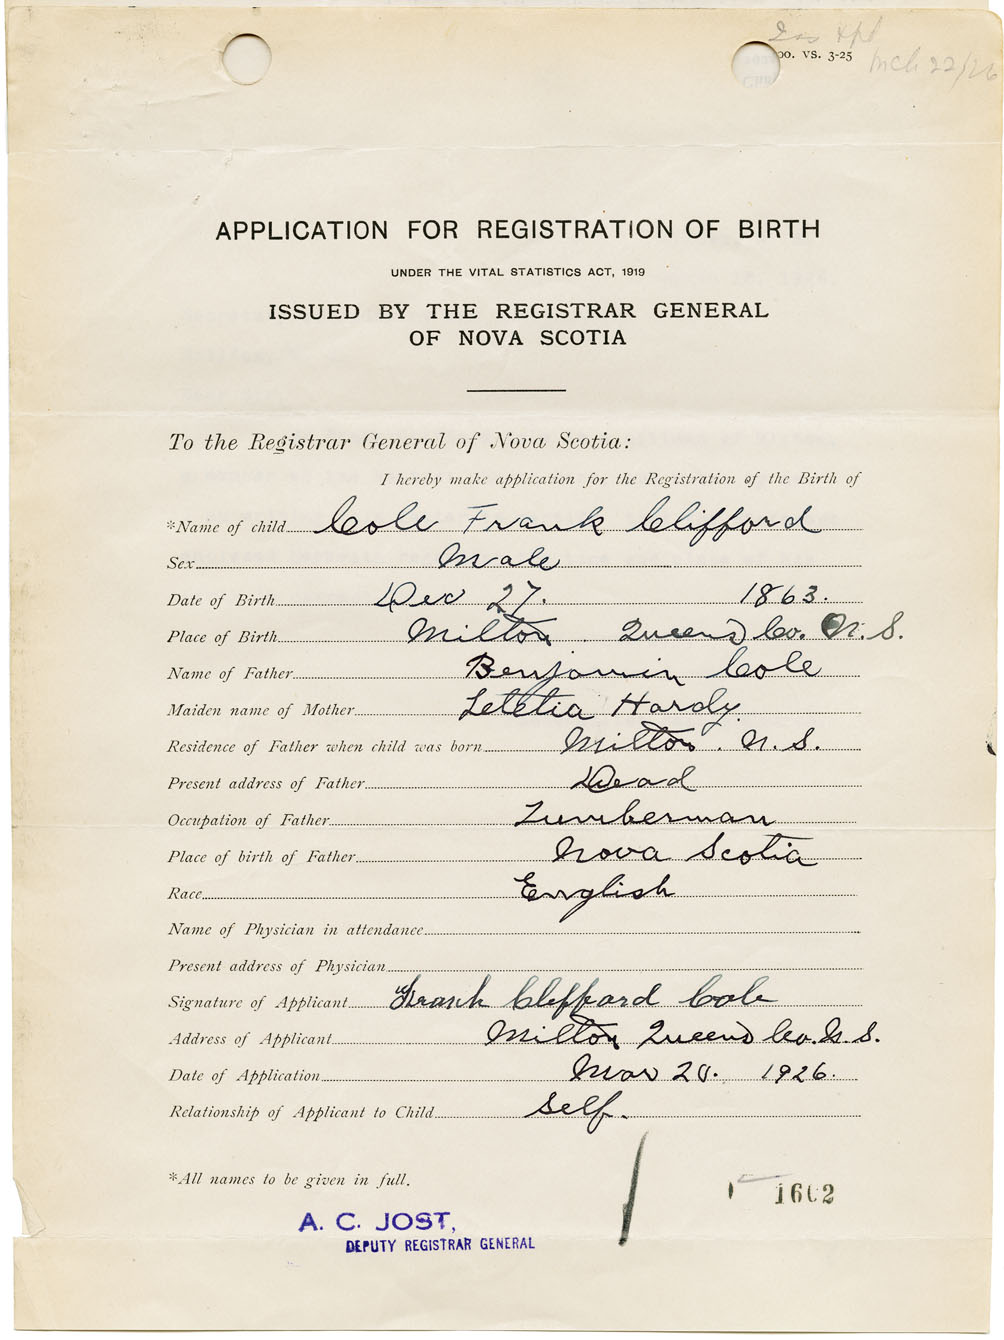 oo. VS. 3-25
Mch 22/26
APPLICATION FOR REGISTRATION OF BIRTH
UNDER THE VITAL STATISTICS ACT, 1919
ISSUED BY THE REGISTRAR GENERAL
OF NOVA SCOTIA
To the Registrar General of Nova Scotia:
I hereby make application for the Registration of the Birth of
*Name of child Cole Frank Clifford
Sex Male
Date of Birth Dec 27. 1863.
Place of Birth Milton Queens Co. N. S.
Name of Father Benjamin Cole
Maiden name of Mother Letetia Hardy
Residence of Father when child was born Milton. N. S.
Present address of Father Dead
Occupation of Father Lumberman
Place of birth of Father Nova Scotia
Race English
Name of Physician in attendance
Present address of Physician
Signature of Applicant Frank Clifford Cole
Address of Applicant Milton Queens Co. N. S.
Date of Application Mar 20. 1926.
Relationship of Applicant to Child Self.
*All names to be given in full.
1602
A. C. JOST,
DEPUTY REGISTRAR GENERAL